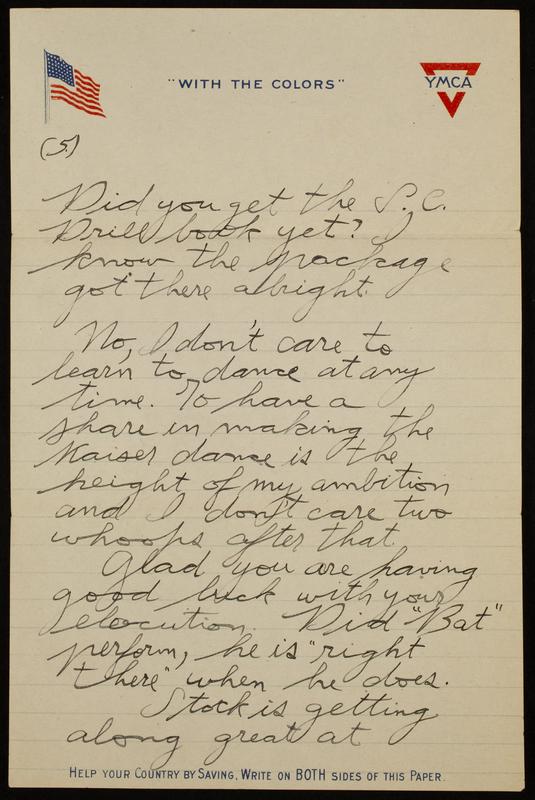 "WITH THE COLORS"
YMCA
(5)
Did you get the S. C.
Drill book yet? I
know the package
got there alright.
No, I don't care to
learn to dance at any
time. To have a
share in making the
Kaiser dance is the
height of my ambition
and I don't care two
whoops after that.
Glad you are having
good luck with your
elocution. Did "Bat"
perform, he is "right
there" when he does.
Stock is getting
along great at
HELP YOUR COUNTRY BY SAVING, WRITE ON BOTH SIDES OF THIS PAPER.